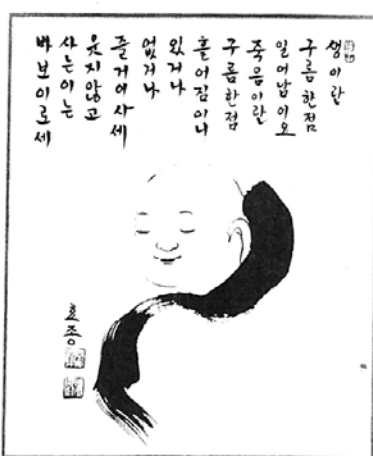 생이란
구름한점
일어남이오
죽음이란
구름한점
흩어짐이니
있거나
없거나
즐거이사세
웃지않고
사는이는
바보이로세
효종